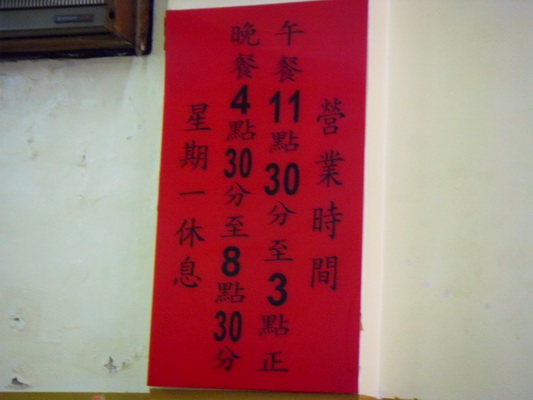 營業時間
午餐11點30分至3點正
晚餐4點30分至8點30分
星期一休息